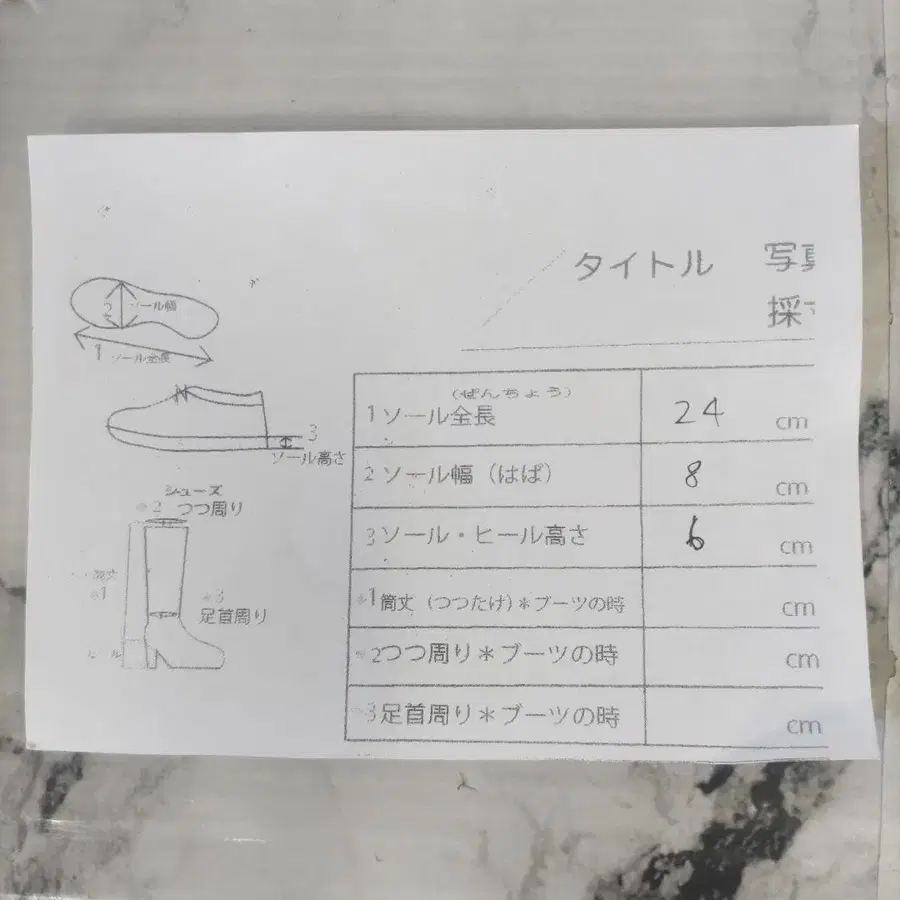 タイトル 写真
採寸
2 ソール幅
1 ソール全長
3
ソール高さ
シューズ
*2 つつ周り
筒丈
*1
*3
足首周り
ヒール
(ぜんちょう)
1 ソール全長 24 cm
2 ソール幅 (はば) 8 cm
3 ソール・ヒール高さ 6 cm
*1 筒丈 (つつたけ)*ブーツの時 cm
*2つつ周り*ブーツの時 cm
*3足首周り*ブーツの時 cm